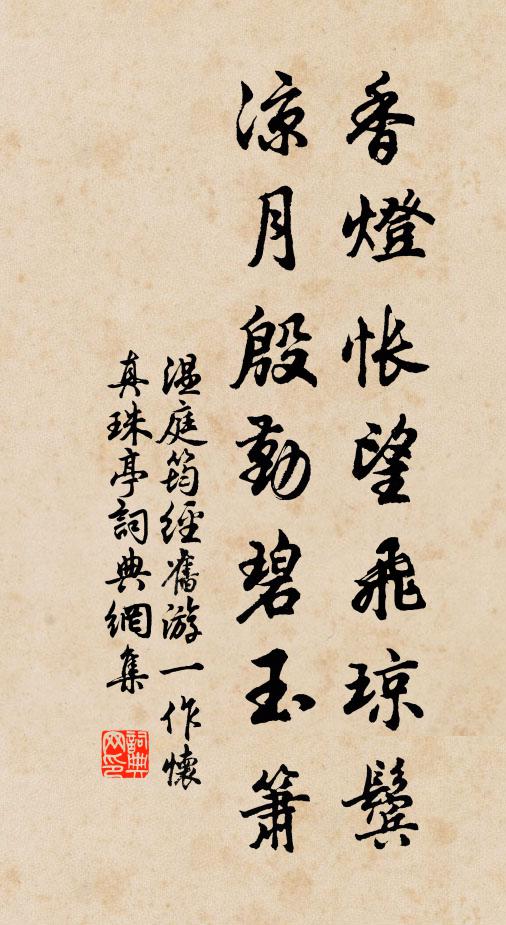 香燈悵望飛瓊鬢
涼月殷勤碧玉簫
温庭筠經舊游一作懷
真珠亭詞典網集
詞典網印